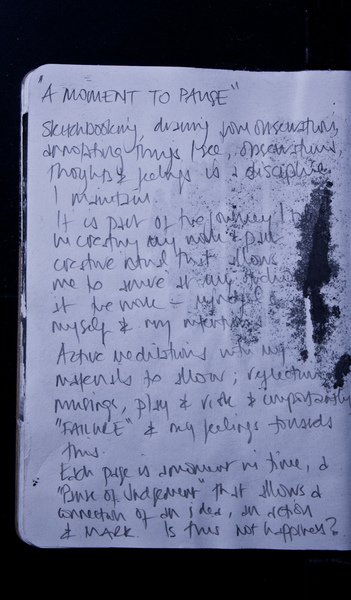 A MOMENT TO PAUSE"
Sketchbooking, drawing from observation,
annotating things I see, observations,
thoughts & feelings is a discipline
I maintain.
It is part of the journey I
in creating my work & part
creative ritual that allows
me to arrive at my
at the work -
myself & my intention
Active meditations with my
materials to allow; reflection
musings, play & risk & importantly
"FAILURE" & my feelings towards
this.
Each page is a moment in time, a
"Pause of Judgement" that allows a
connection of an idea, an action
& MARK. Is this not happiness?